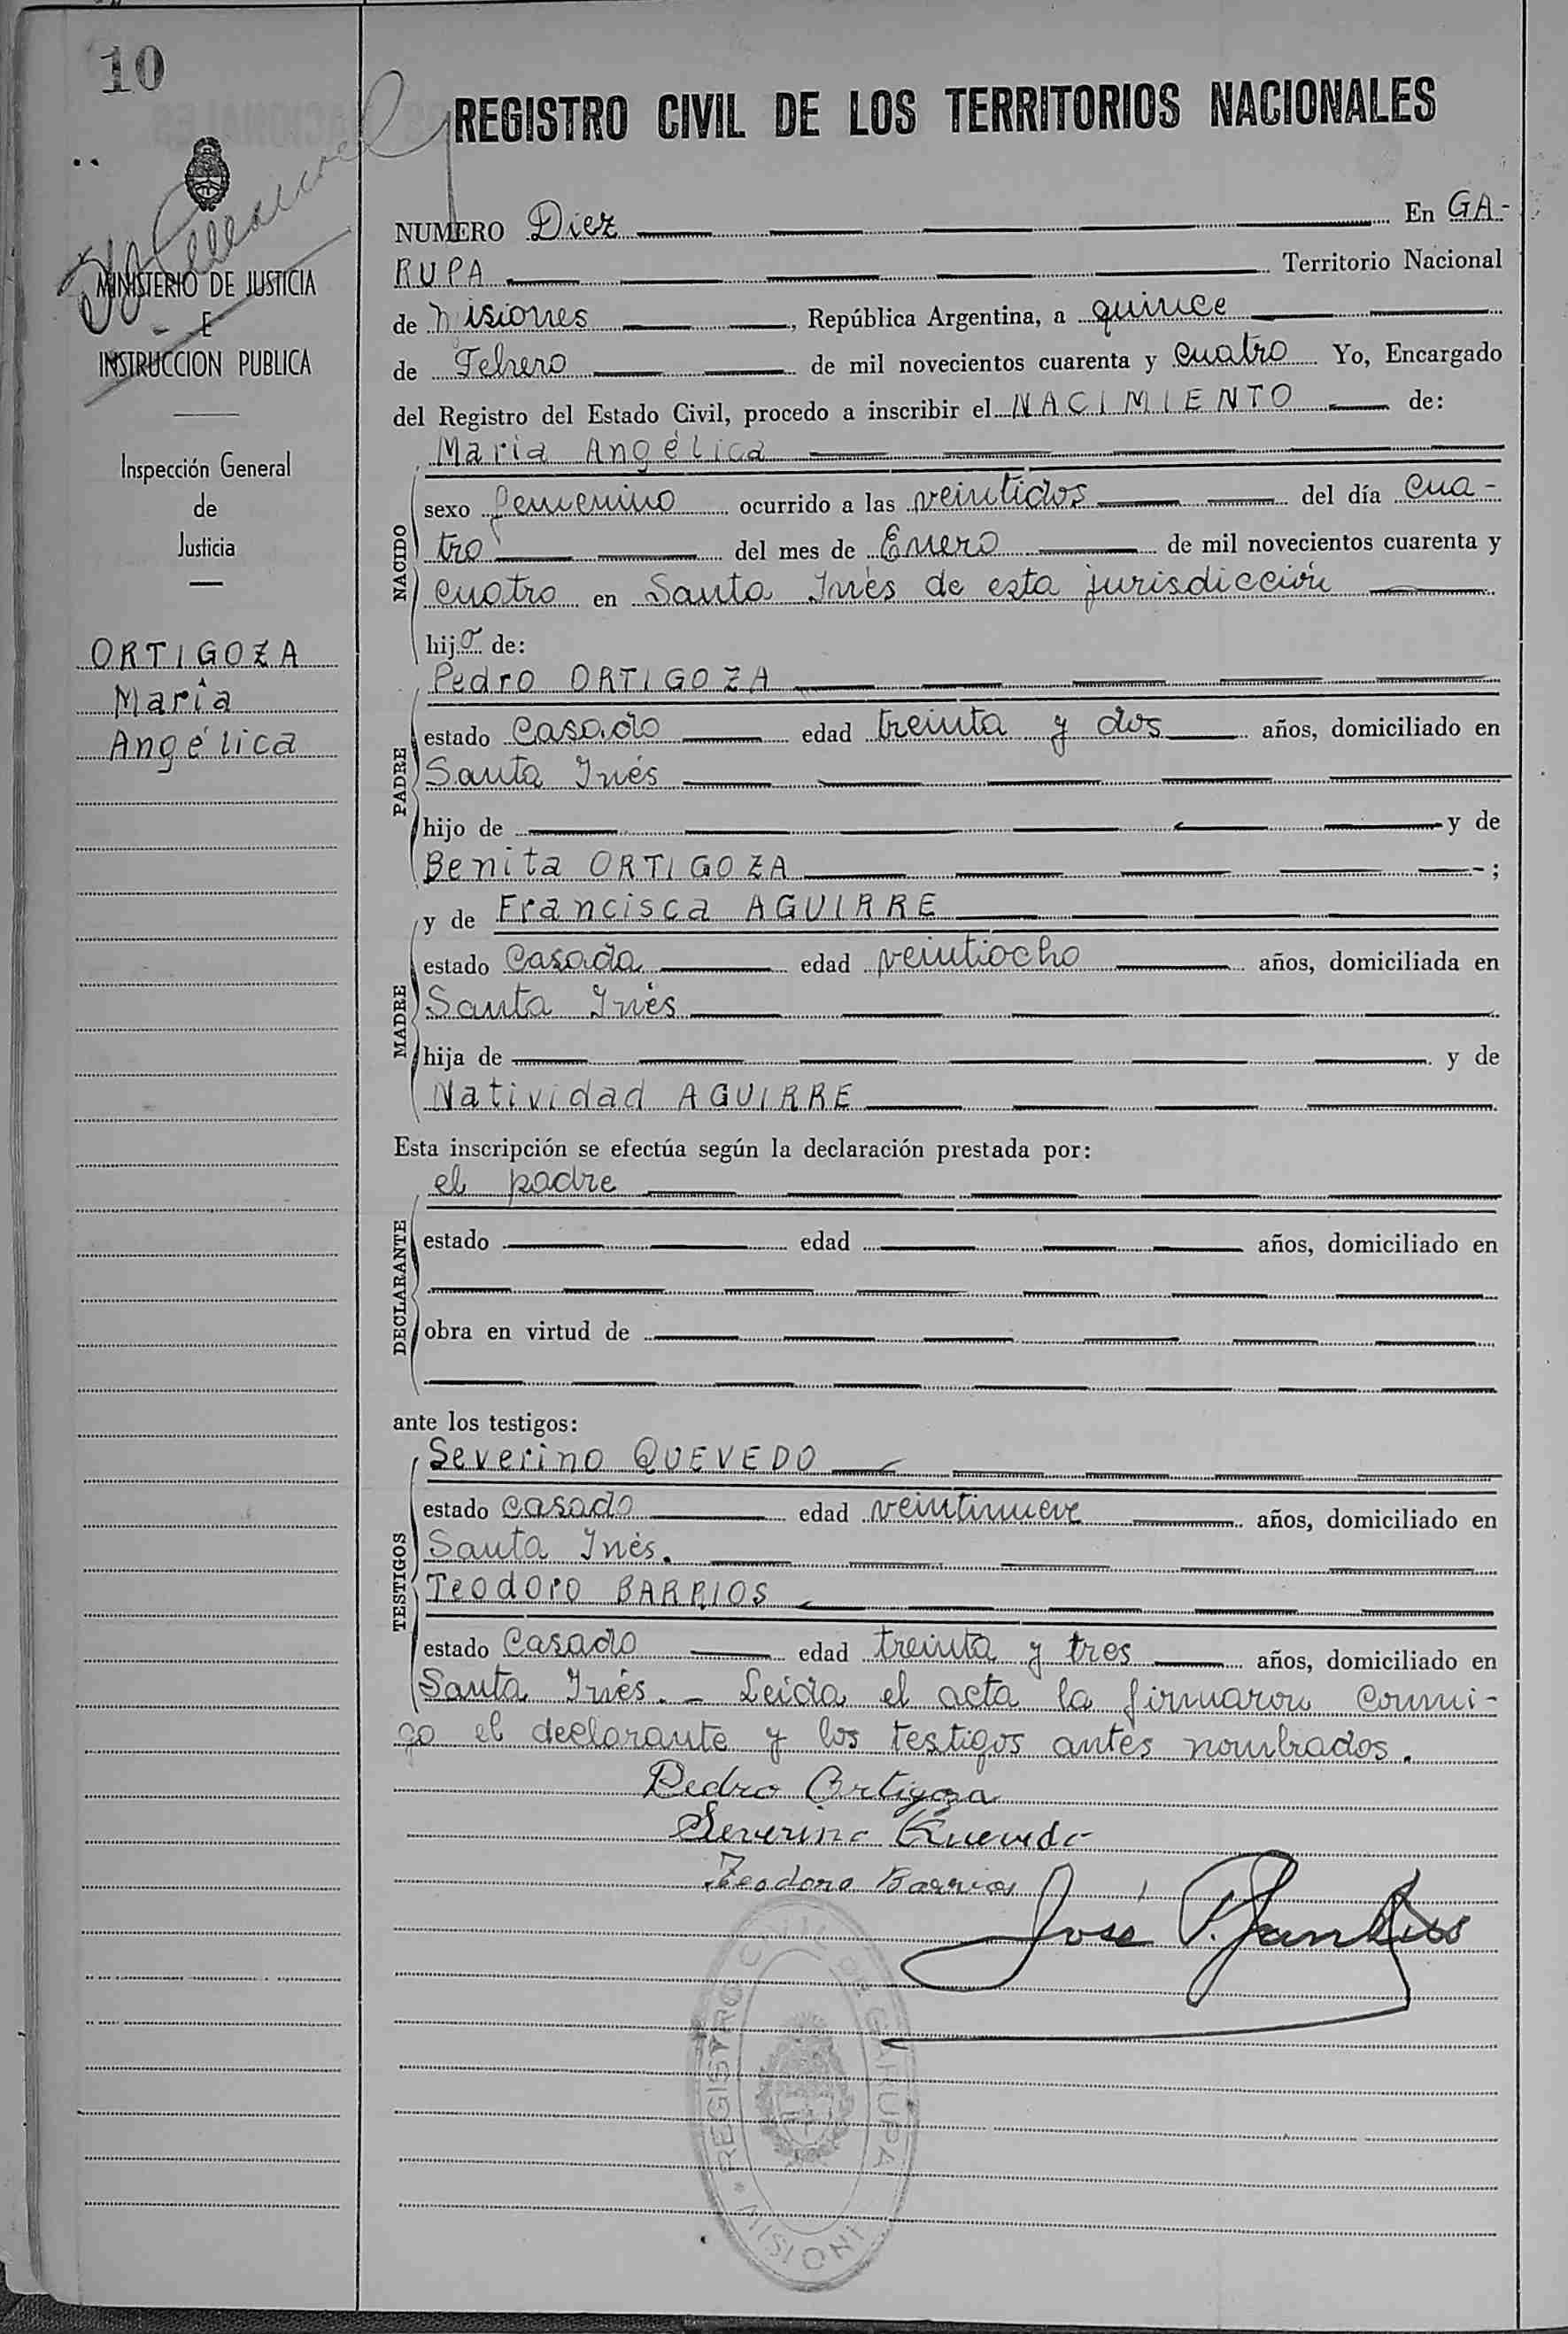 10
REGISTRO CIVIL DE LOS TERRITORIOS NACIONALES
MINISTERIO DE JUSTICIA
E
INSTRUCCION PUBLICA
Inspección General
de
Justicia
ORTIGOZA
María
Angélica
NUMERO Diez En GA-
RUPA Territorio Nacional
de Misiones, República Argentina, a quince
de Febrero de mil novecientos cuarenta y cuatro Yo, Encargado
del Registro del Estado Civil, procedo a inscribir el NACIMIENTO de:
María Angélica
NACIDO
sexo femenino ocurrido a las veintidos del día cua-
tro del mes de Enero de mil novecientos cuarenta y
cuatro en Santa Inés de esta jurisdicción
hija de:
Pedro ORTIGOZA
PADRE
estado casado edad treinta y dos años, domiciliado en
Santa Inés
hijo de y de
Benita ORTIGOZA ;
MADRE
y de Francisca AGUIRRE
estado casada edad veintiocho años, domiciliada en
Santa Inés
hija de y de
Natividad AGUIRRE
Esta inscripción se efectúa según la declaración prestada por:
el padre
DECLARANTE
estado edad años, domiciliado en
obra en virtud de
ante los testigos:
Severino QUEVEDO
TESTIGOS
estado casado edad veintinueve años, domiciliado en
Santa Inés.
Teodoro BARRIOS
estado casado edad treinta y tres años, domiciliado en
Santa Inés. - Leida el acta la firmaron conmi-
go el declarante y los testigos antes nombrados.
Pedro Ortigoza
Severino Quevedo
Teodoro Barrios
José P.
REGISTRO CIVIL DE GARUPA
MISIONES